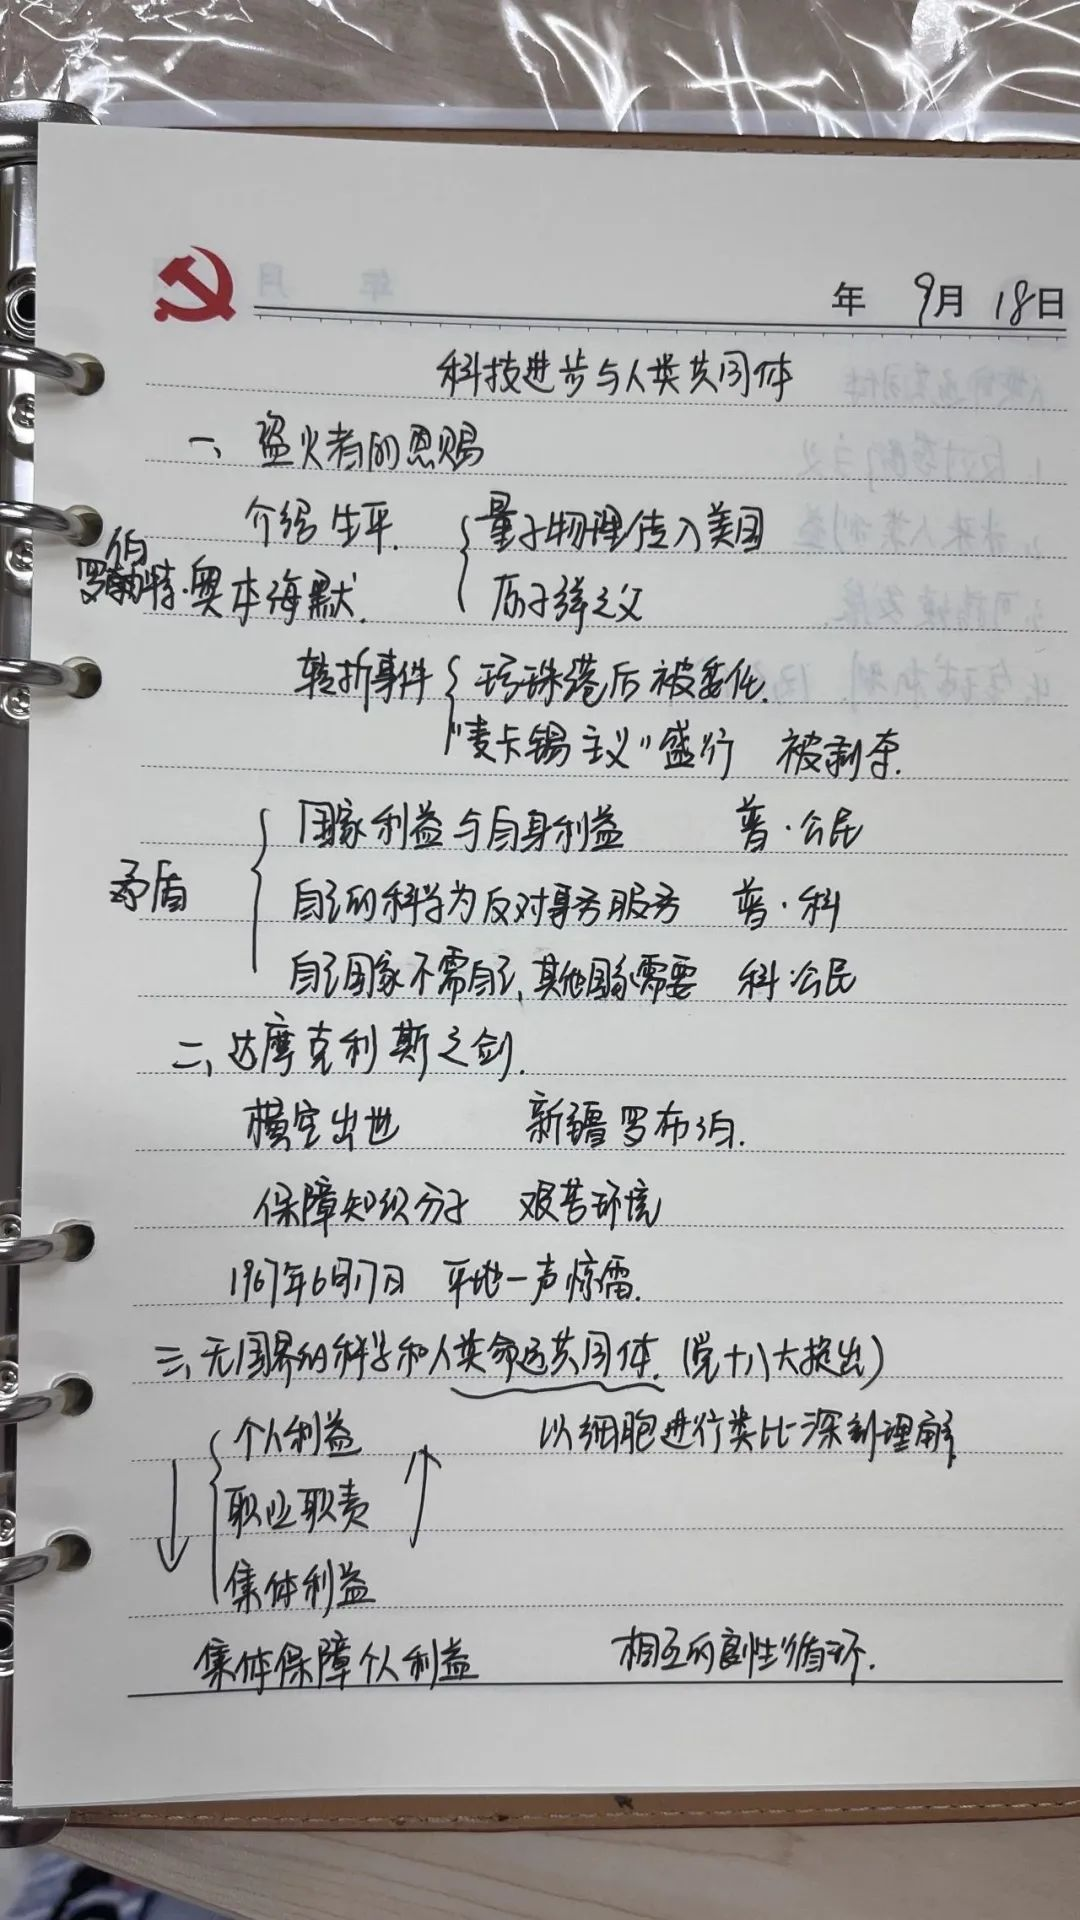 年 9月 18日
科技进步与人类共同体
一、盗火者的恩赐
介绍生平. 量子物理传入美国
罗伯特·奥本海默. 原子弹之父
转折事件 珍珠港后被委任.
"麦卡锡主义"盛行 被剥夺.
矛盾
国家利益与自身利益 普·公民
自己的科学为反对事务服务 普·科
自己国家不需自己,其他国家需要 科·公民
二、达摩克利斯之剑.
横空出世 新疆罗布泊.
保障知识分子 艰苦环境
1967年6月17日 平地一声惊雷.
三、无国界的科学和人类命运共同体.(党十八大提出)
个人利益 以细胞进行类比深刻理解
职业职责
集体利益
集体保障个人利益 相互的良性循环.